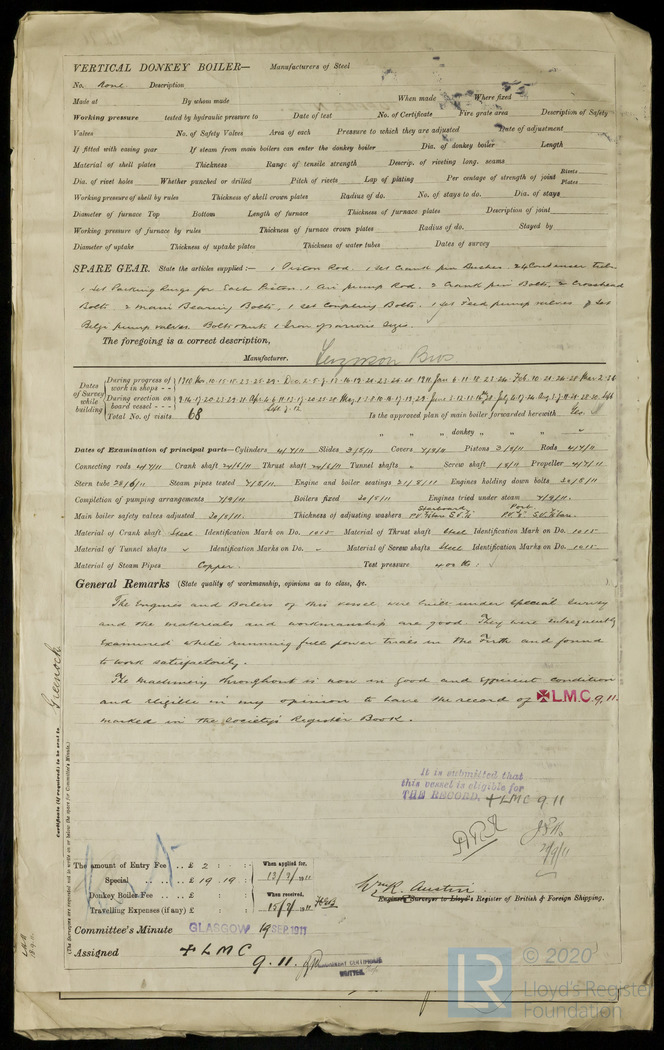 VERTICAL DONKEY BOILER— Manufacturers of Steel
No. None Description
Made at By whom made When made Where fixed
Working pressure tested by hydraulic pressure to Date of test No. of Certificate Fire grate area Description of Safety
Valves No. of Safety Valves Area of each Pressure to which they are adjusted Date of adjustment
If fitted with easing gear If steam from main boilers can enter the donkey boiler Dia. of donkey boiler Length
Material of shell plates Thickness Range of tensile strength Descrip. of riveting long. seams
Dia. of rivet holes Whether punched or drilled Pitch of rivets Lap of plating Per centage of strength of joint Rivets Plates
Working pressure of shell by rules Thickness of shell crown plates Radius of do. No. of stays to do. Dia. of stays
Diameter of furnace Top Bottom Length of furnace Thickness of furnace plates Description of joint
Working pressure of furnace by rules Thickness of furnace crown plates Radius of do. Stayed by
Diameter of uptake Thickness of uptake plates Thickness of water tubes Dates of survey
SPARE GEAR. State the articles supplied:— 1 Piston Rod. 1 set Crank pin Bushes. 24 Condenser Tubes
1 set Packing Rings for Each Piston. 1 Air pump Rod. 2 Crank pin Bolts, 2 Crosshead
Bolts. 2 Main Bearing Bolts, 1 set Coupling Bolts. 1 set Feed pump valves. 1 set
Bilge pump valves. Bolts & nuts & Iron of various sizes.
The foregoing is a correct description,
Manufacturer. Ferguson Bros
Dates of Survey while building
During progress of work in shops - - 1910 Nov. 10-15-18-23-25-29- Dec. 2-5- 1911 Jan 6-11-18-23-26 Feb. 10-21-24-28 Mar 2-
During erection on board vessel - - -
Total No. of visits 68 Is the approved plan of main boiler forwarded herewith Yes.
" " " donkey " " "
Dates of Examination of principal parts—Cylinders 4/7/11 Slides 3/8/11 Covers 7/8/11 Pistons 3/8/11 Rods 4/7/11
Connecting rods 4/7/11 Crank shaft Thrust shaft Tunnel shafts " Screw shaft 1/8/11 Propeller 4/7/11
Stern tube 28/6/11 Steam pipes tested 7/8/11 Engine and boiler seatings 21/8/11 Engines holding down bolts 20/8/11
Completion of pumping arrangements 7/9/11 Boilers fixed 20/8/11 Engines tried under steam 7/9/11.
Main boiler safety valves adjusted 20/8/11. Thickness of adjusting washers Starboard Port
Material of Crank shaft Steel Identification Mark on Do. 1015 Material of Thrust shaft Steel Identification Mark on Do. 1015
Material of Tunnel shafts Identification Marks on Do. Material of Screw shafts Steel Identification Marks on Do. 1015
Material of Steam Pipes Copper. Test pressure 400 lbs.
General Remarks (State quality of workmanship, opinions as to class, &c.
The Engines and Boilers of this vessel were built under Special Survey
and the materials and workmanship are good. They were subsequently
Examined while running full power trials in the Firth and found
to work satisfactorily.
The machinery throughout is now in good and efficient condition
and eligible in my opinion to have the record of ✠LMC. 9. 11.
marked in the Society's Register Book.
Greenock
Certificate (if required) to be sent to
(The Surveyors are requested not to write on or below the space for Committee's Minute.)
It is submitted that
this vessel is eligible for
THE RECORD. + LMC 9. 11
The amount of Entry Fee .. £ 2 : :
Special .. £ 19 . 19 :
Donkey Boiler Fee .. £ : :
Travelling Expenses (if any) £ : :
When applied for, 13/9/1911
When received, 15/9/1911
Wm R. Austin.
Engineer Surveyor to Lloyd's Register of British & Foreign Shipping.
Committee's Minute GLASGOW 19 SEP. 1911
Assigned + LMC
9. 11.
MACHINERY CERTIFICATE
WRITTEN.
LR
© 2020
Lloyd's Register
Foundation